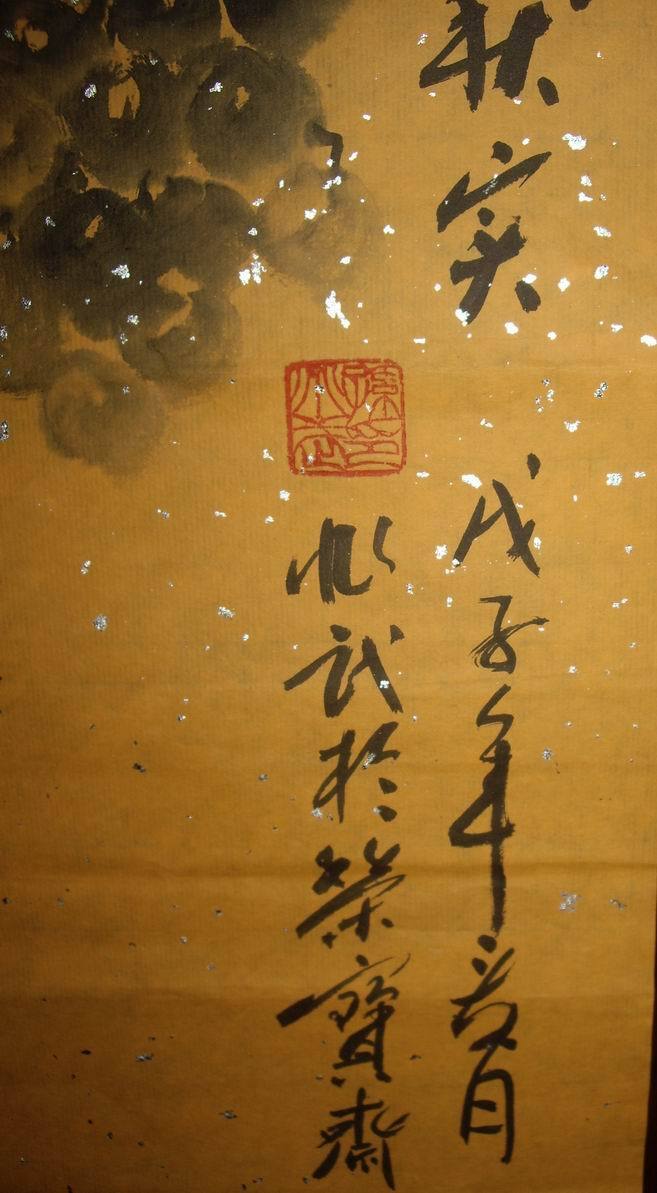 秋实
戊子年夏月
兆武於榮寶齋